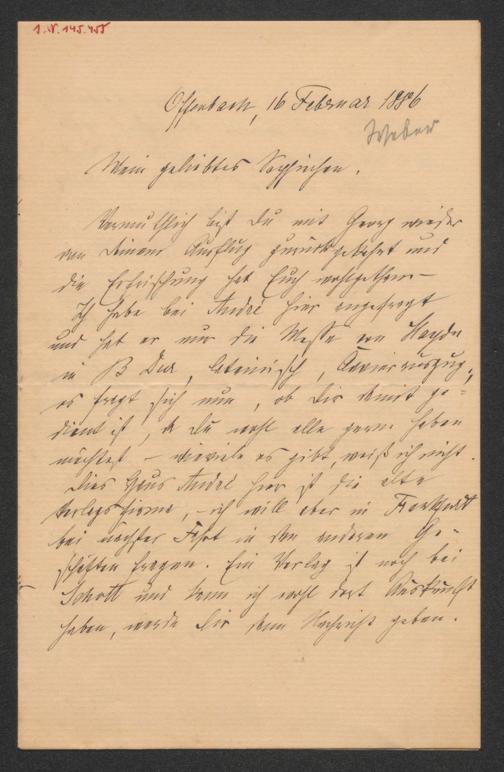 I.N. 145.455
Offenbach, 16 Februar 1886
Weber
Mein geliebtes Sophiechen.
Vermuthlich bist Du mit Georg wieder
von Deinem Ausflug zurückgekehrt und
die Erfrischung hat Euch wohlgethan –
Ich habe bei André hier angefragt
und hat er nur die Messe von Haydn
in B Dur, lateinisch, Clavierauszug,
es fragt sich nun, ob Dir damit ge-
dient ist, da Du wohl alle gerne haben
möchtest – wieviele es gibt, weiß ich nicht.
Dies Haus André hier ist die alte
Verlagsfirma, – ich will aber in Frankfurt
bei nächster Fahrt in den anderen Ge-
schäften fragen. Ein Verlag ist noch bei
Schott und kann ich wohl dort Auskunft
haben, werde Dir dann Nachricht geben.